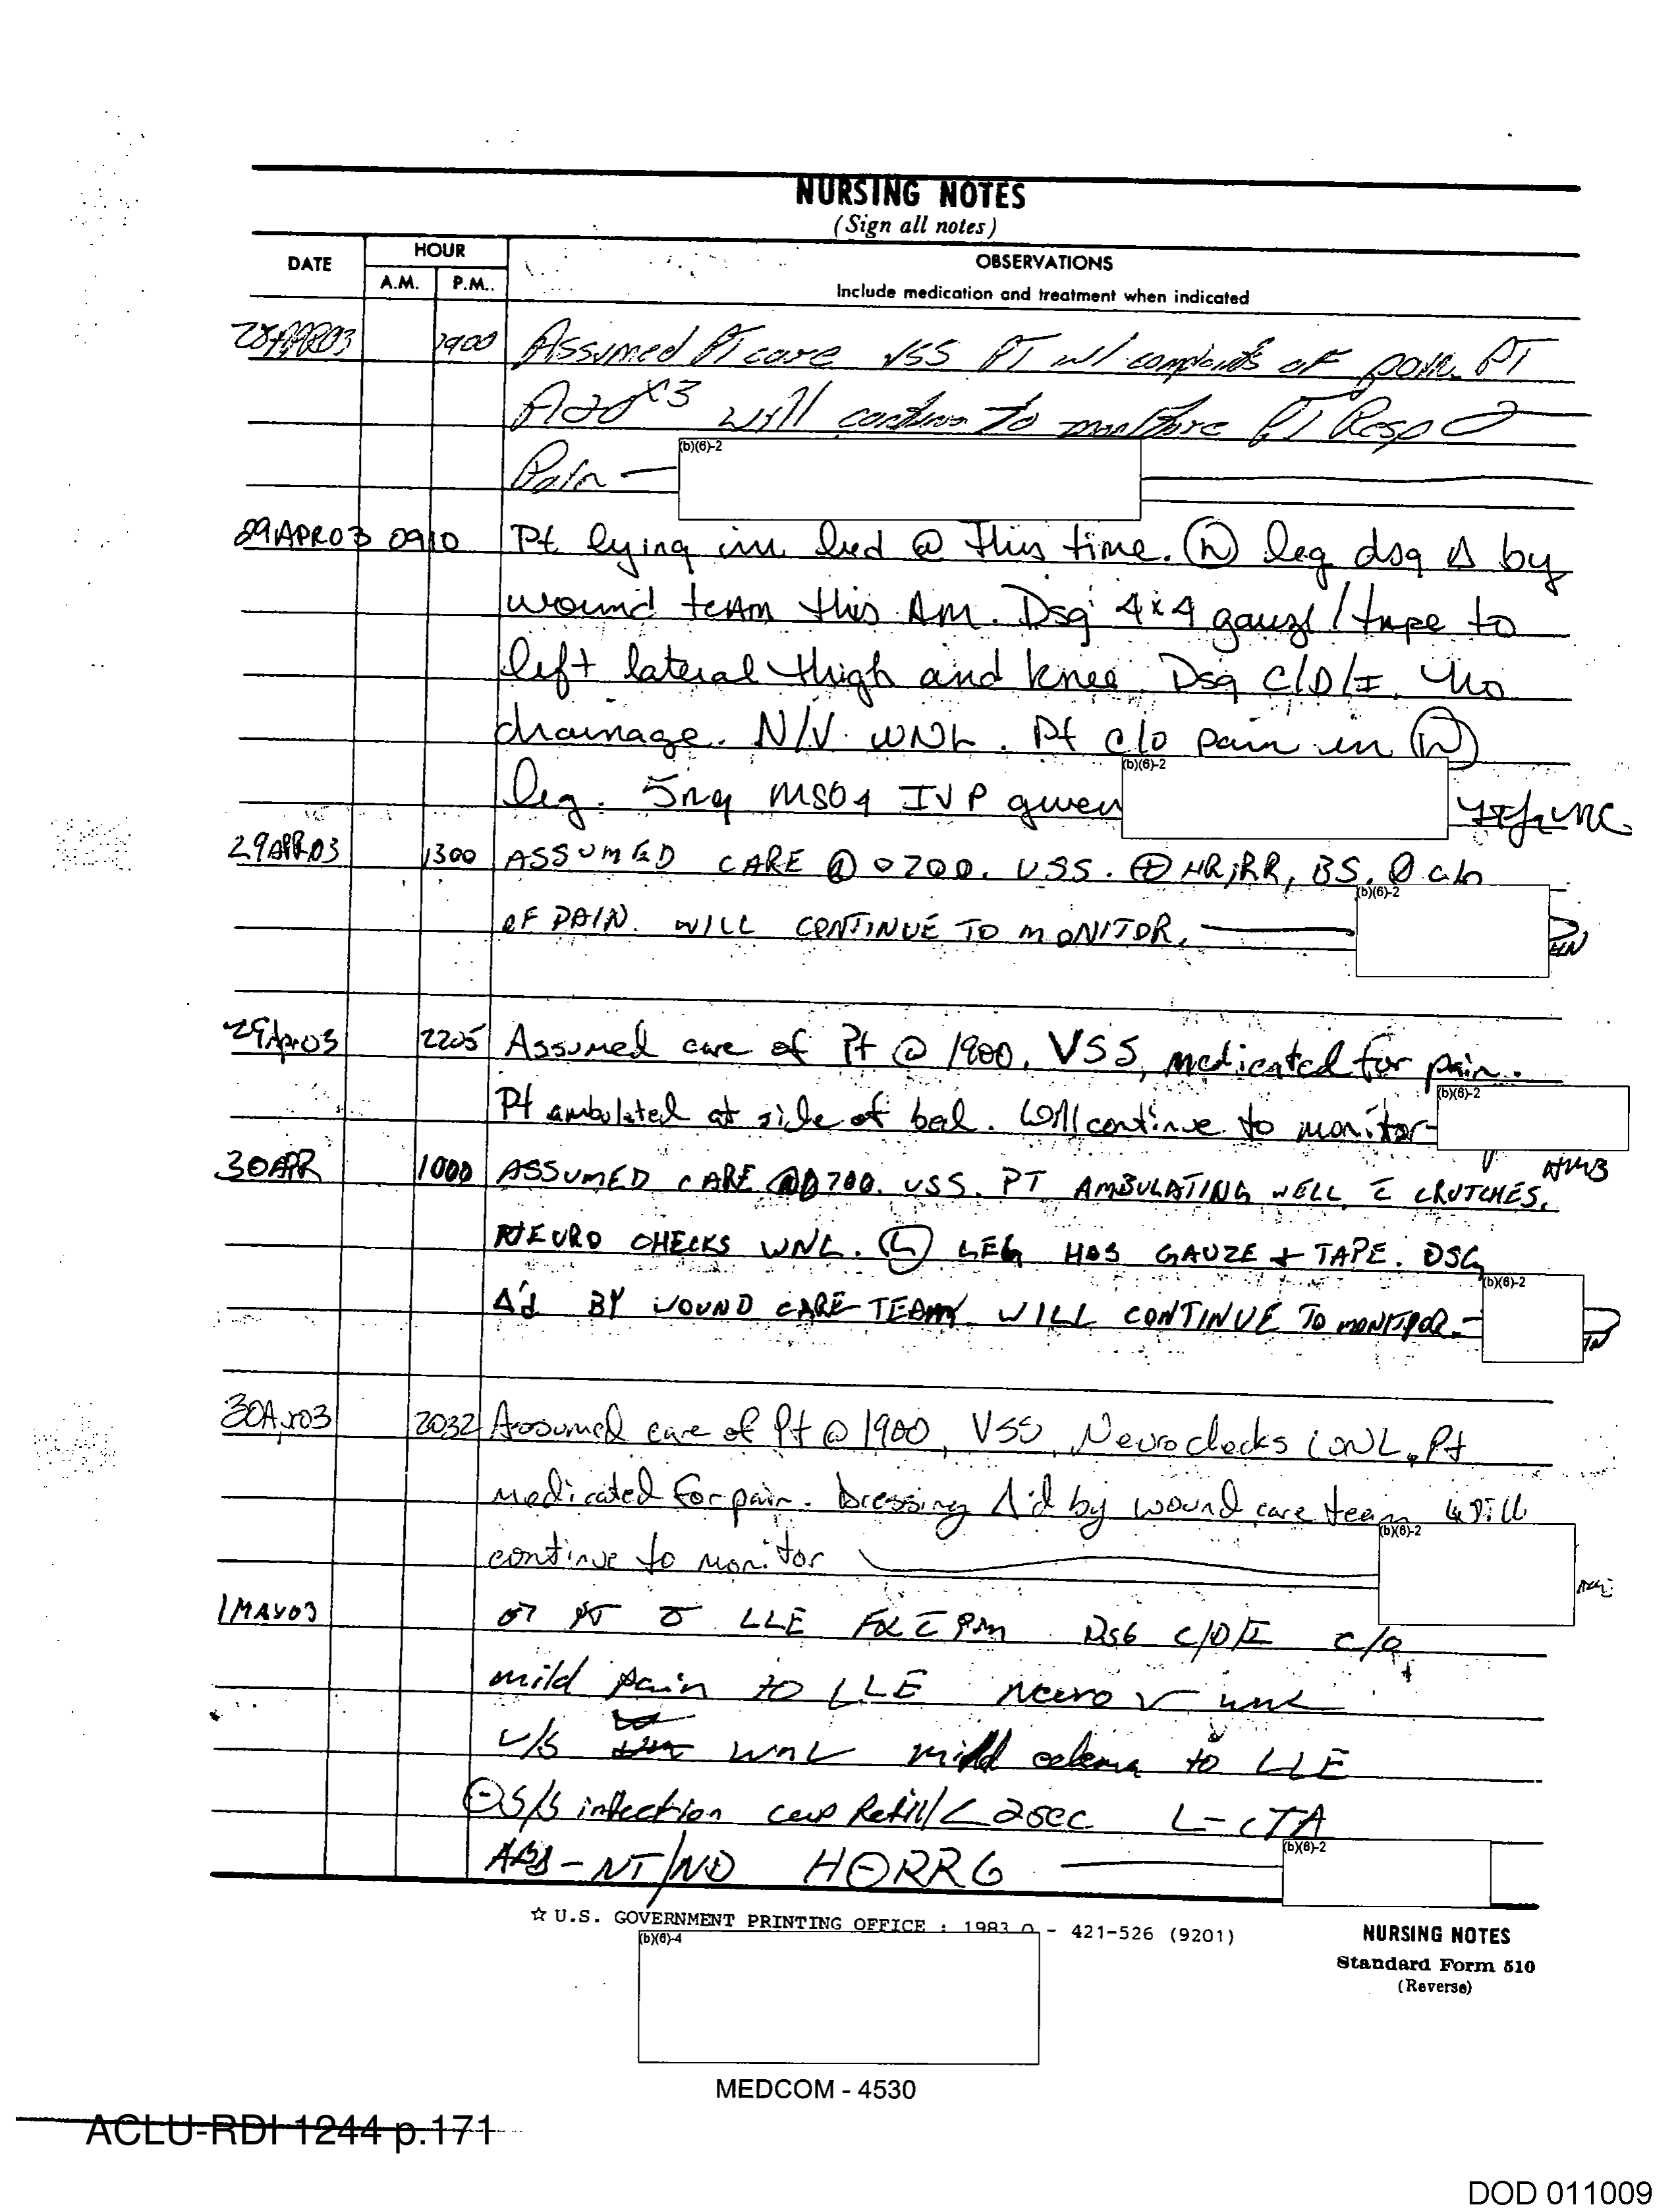 NURSING NOTES
(Sign all notes)
DATE
HOUR
A.M.
P.M.
OBSERVATIONS
Include medication and treatment when indicated
28APR03 1900 Assumed PT care VSS PT w/ complaints of pain. PT
A+O x3 will continue to PT Resp
Pain —
(b)(6)-2
29APR03 0910 Pt lying in bed @ this time. (L) leg dsg Δ by
wound team this AM. Dsg 4x4 gauze/tape to
left lateral thigh and knee. Dsg C/D/I. No
drainage. N/V WNL. Pt c/o pain in (L)
(b)(6)-2
leg. 5mg MSO4 IVP given
29APR03 1300 ASSUMED CARE @ 0700. VSS. ⊕ HR, RR, BS. Ø c/o
(b)(6)-2
OF PAIN. WILL CONTINUE TO MONITOR. — HN
29Apr03 2205 Assumed care of Pt @ 1900. VSS, medicated for pain.
(b)(6)-2
Pt ambulated at side of bed. Will continue to monitor-
30APR 1000 ASSUMED CARE @ 0700. VSS. PT AMBULATING WELL c̄ CRUTCHES.
NEURO CHECKS WNL. (L) LEG HAS GAUZE + TAPE. DSG
(b)(6)-2
Δ'd BY WOUND CARE TEAM. WILL CONTINUE TO MONITOR.-
30Apr03 2032 Assumed care of Pt @ 1900, VSS, Neurochecks WNL, Pt
medicated for pain. Dressing Δ'd by wound care team will
(b)(6)-2
continue to monitor
1MAY03 LLE FX c̄ DSG C/D/I c/o
mild pain to LLE neuro √ wnl
V/S WNL mild edema to LLE
⊖ S/S infection cap Refill < 2sec L-CTA
(b)(6)-2
ABD-NT/ND H⊖RRG —
☆ U.S. GOVERNMENT PRINTING OFFICE : 1983 O - 421-526 (9201)
NURSING NOTES
Standard Form 510
(Reverse)
(b)(6)-4
MEDCOM - 4530
ACLU-RDI 1244 p.171
DOD 011009